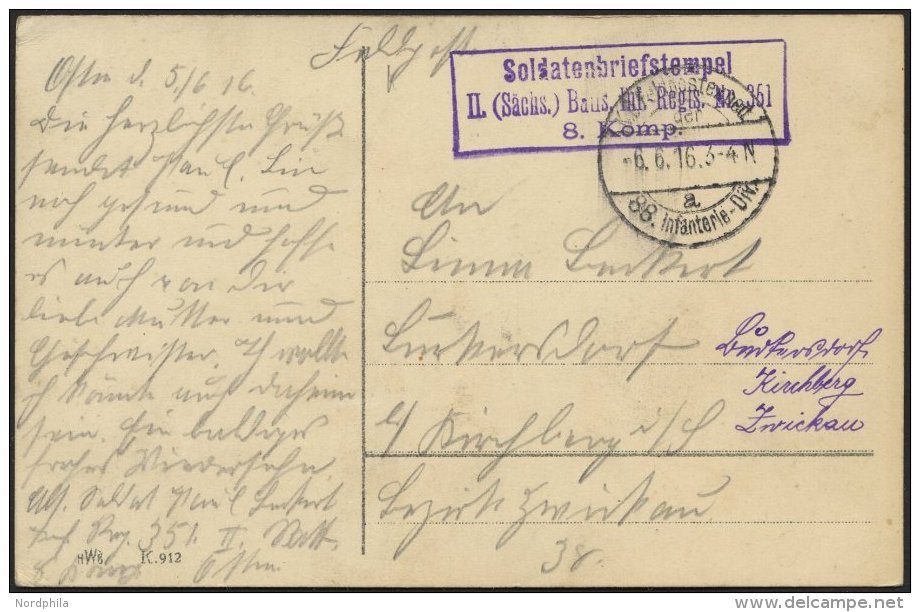 Feldpost
Osten d. 5./6 16.
Die herzlichste Grüße
sendet Paul. Bin
noch gesund und
munter und hoffe
es auch von dir
liebe Mutter und
Geschwister. Ich wollte
ich könnte auch daheim
sein. Ein baldiges
frohes Wiedersehn
Abs. Soldat Paul
Reg. 351. II. Batt.
Osten
HWB K.912
Soldatenbriefstempel
II. (Sächs.) Batls. Inf.-Regts. Nr. 351
8. Komp.
der
-6.6.16.3-4 N
a
88. Infanterie-Div.
An
Burkersdorf
b/ Kirchberg i/S
Bezirk Zwickau
38.
Burkersdorf
Kirchberg
Zwickau
Nordphila
delcampe.net